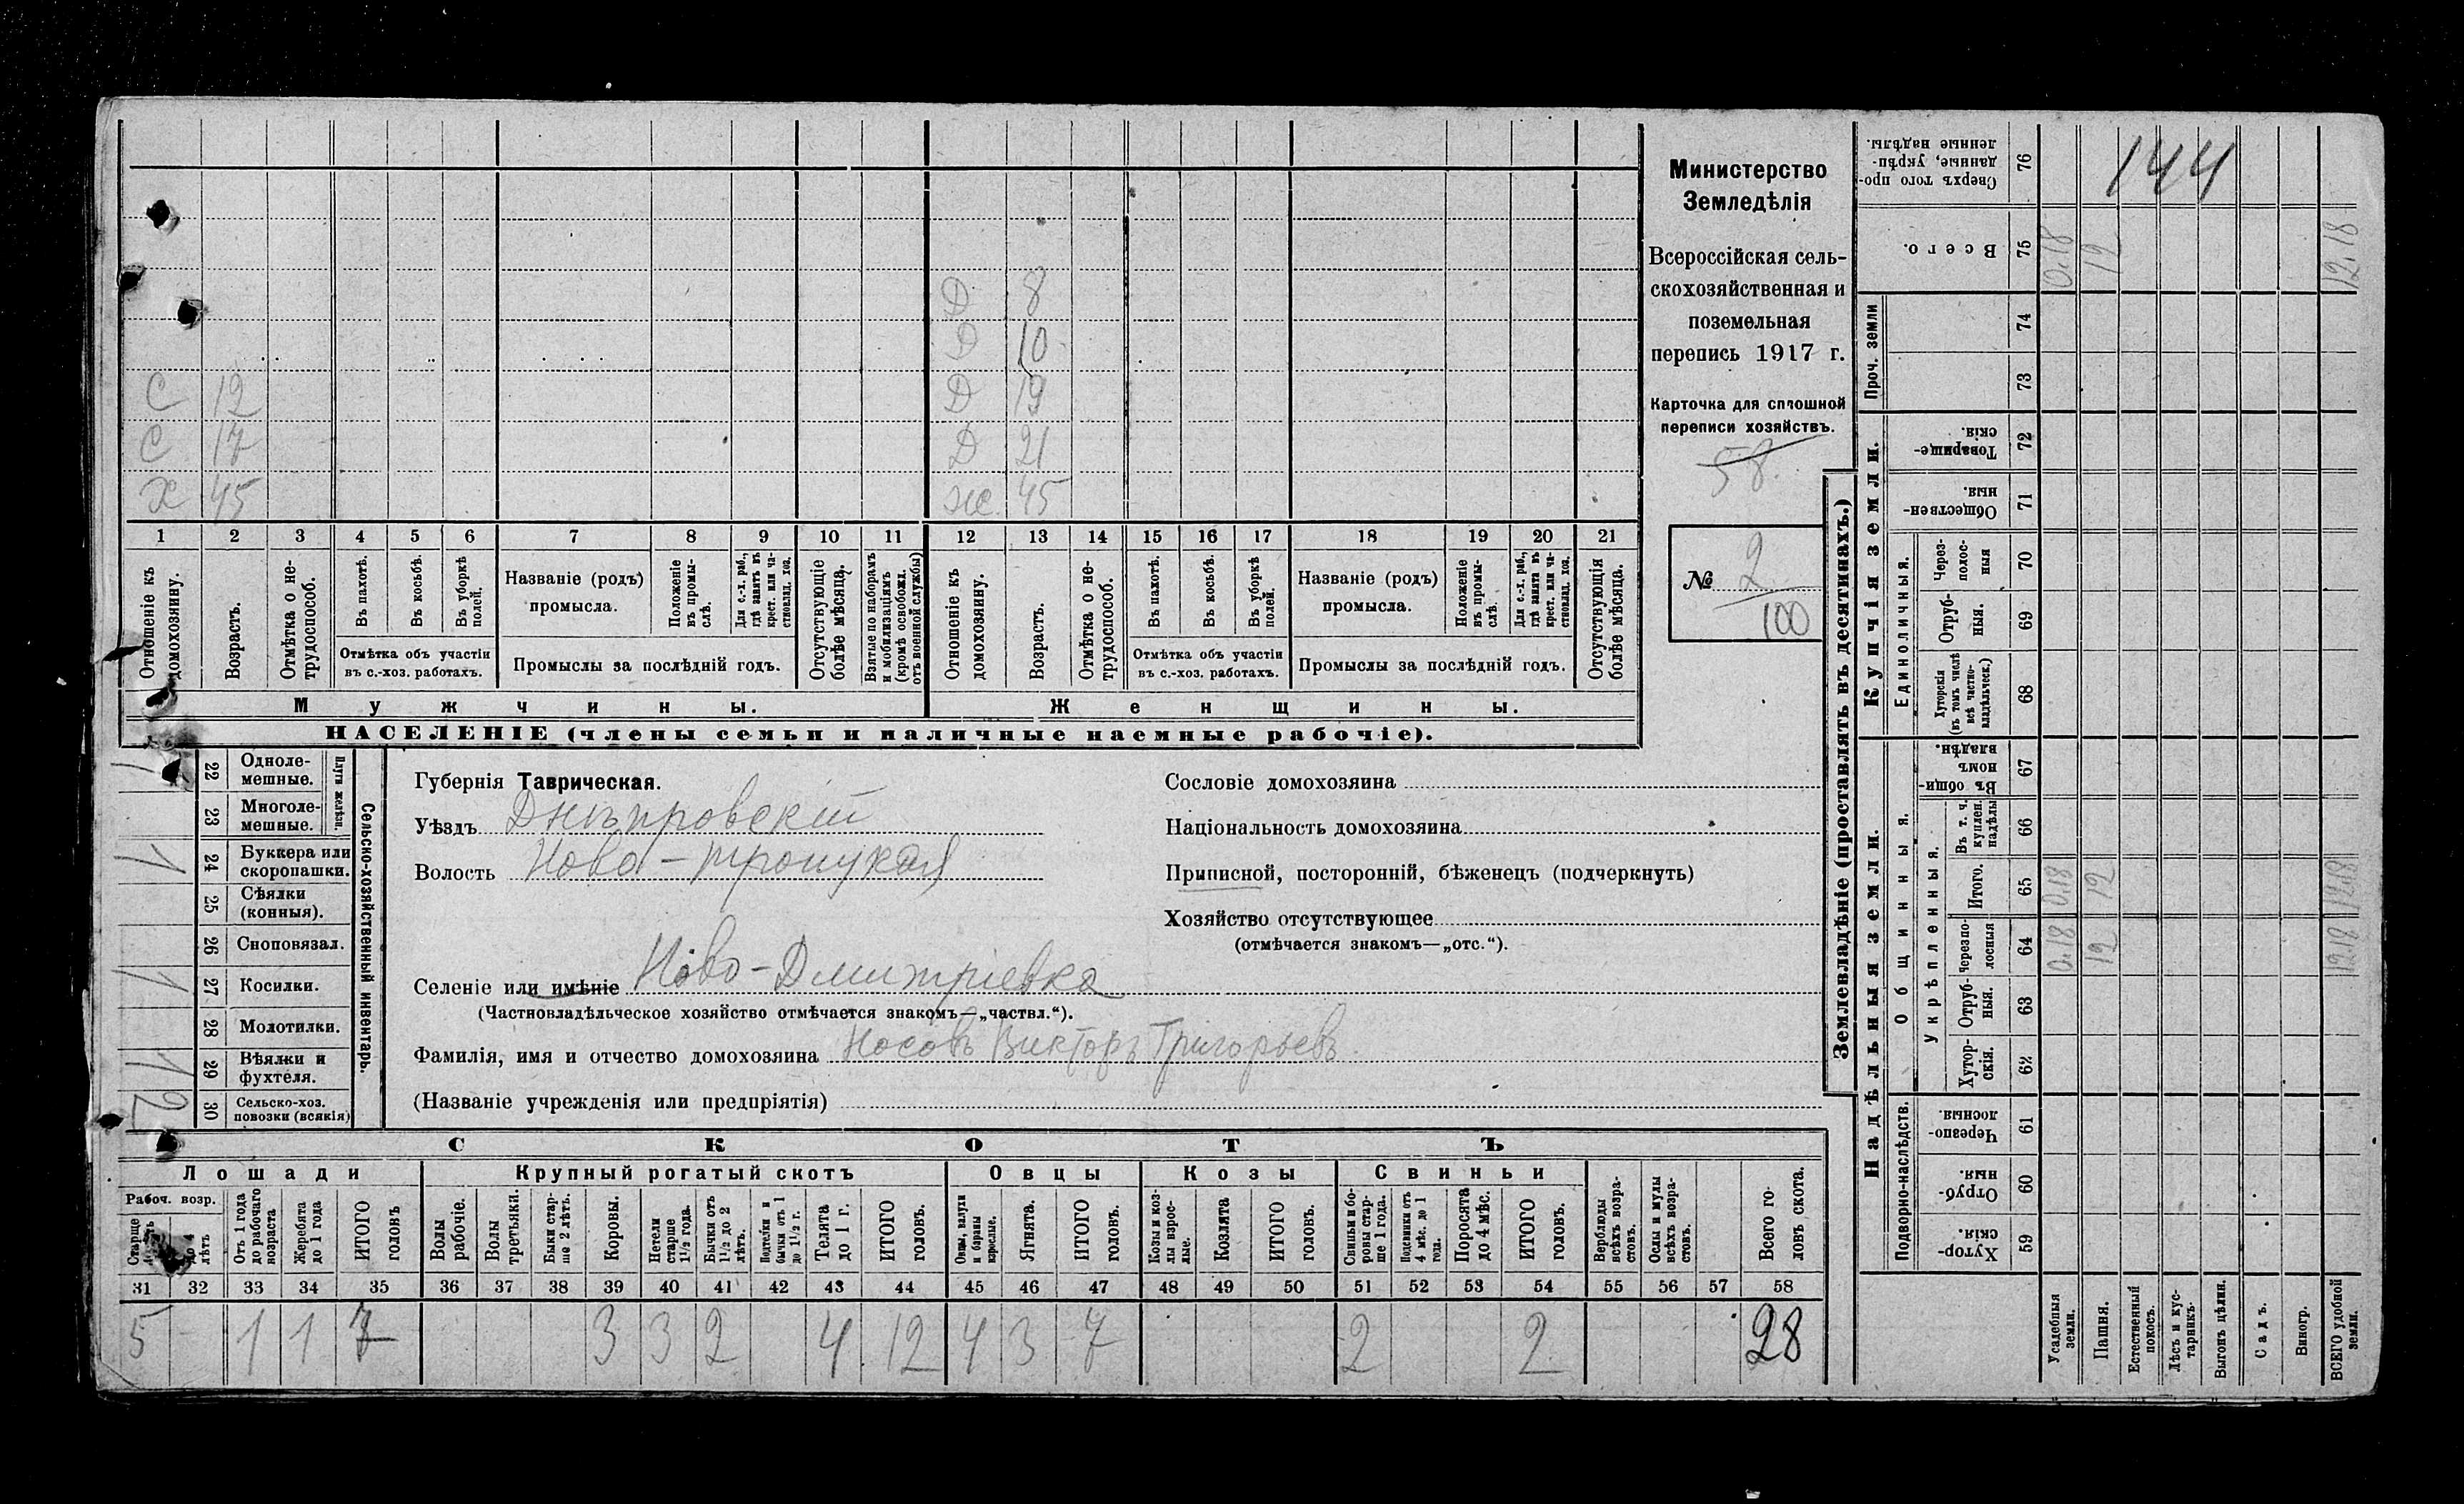 Министерство
Земледѣлія
Всероссійская сель-
скохозяйственная и
поземельная
перепись 1917 г.
Карточка для сплошной
переписи хозяйствъ.
58.
№ 2
100
Д 8
Д 10
С 12 Д 19
С 17 Д 21
Х 45 Ж 45
1 2 3 4 5 6 7 8 9 10 11 12 13 14 15 16 17 18 19 20 21
Отношеніе къ домохозяину.
Возрастъ.
Отмѣтка о не-трудоспособ.
Въ пахотѣ.
Въ косьбѣ.
Въ уборкѣ полей.
Отмѣтка объ участіи
въ с.-хоз. работахъ.
Названіе (родъ)
промысла.
Положеніе въ промы-слѣ.
Для с.-х. раб., гдѣ занятъ въ крест. или ча-стновлад. хоз.
Промыслы за послѣдній годъ.
Отсутствующіе болѣе мѣсяца.
Взятые по наборамъ и мобилизаціямъ (кромѣ освобожд. отъ военной службы)
Отношеніе къ домохозяину.
Возрастъ.
Отмѣтка о не-трудоспособ.
Въ пахотѣ.
Въ косьбѣ.
Въ уборкѣ полей.
Отмѣтка объ участіи
въ с.-хоз. работахъ.
Названіе (родъ)
промысла.
Положеніе въ промы-слѣ.
Для с.-х. раб., гдѣ занята въ крест. или ча-стновлад. хоз.
Промыслы за послѣдній годъ.
Отсутствующія болѣе мѣсяца.
Мужчины. Женщины.
НАСЕЛЕНІЕ (члены семьи и наличные наемные рабочіе).
Сельско-хозяйственный инвентарь.
Плуги желѣзн.
22 Одноле-мешные.
23 Многоле-мешные.
1 24 Буккера или скоропашки.
25 Сѣялки (конныя).
26 Сноповязал.
1 27 Косилки.
28 Молотилки.
1 29 Вѣялки и фухтеля.
2 30 Сельско-хоз. повозки (всякія)
Губернія Таврическая.
Уѣздъ Днѣпровскій
Волость Ново-Троицкая
Селеніе или имѣніе Ново-Дмитріевка
(Частновладѣльческое хозяйство отмѣчается знакомъ—„частвл.“).
Фамилія, имя и отчество домохозяина Носовъ Викторъ Григорьевъ
(Названіе учрежденія или предпріятія)
Сословіе домохозяина
Національность домохозяина
Приписной, посторонній, бѣженецъ (подчеркнуть)
Хозяйство отсутствующее
(отмѣчается знакомъ—„отс.“).
СКОТЪ
Лошади Крупный рогатый скотъ Овцы Козы Свиньи
Рабоч. возр.
Старше
до 4 лѣтъ
Отъ 1 года до рабочаго возраста
Жеребята до 1 года
ИТОГО головъ
Волы рабочіе.
Волы третьяки.
Быки стар-ше 2 лѣтъ.
Коровы.
Нетели старше 1½ года.
Бычки отъ 1½ до 2 лѣтъ.
Подтелки и бычки отъ 1 до 1½ г.
Телята до 1 г.
ИТОГО головъ.
Овцы, валухи и бараны взрослые.
Ягнята.
ИТОГО головъ.
Козы и коз-лы взрос-лые.
Козлята
ИТОГО головъ.
Свиньи и бо-ровы стар-ше 1 года.
Подсвинки отъ 4 мѣс. до 1 года.
Поросята до 4 мѣс.
ИТОГО головъ.
Верблюды всѣхъ возра-стовъ.
Ослы и мулы всѣхъ возра-стовъ.
Всего го-ловъ скота.
31 32 33 34 35 36 37 38 39 40 41 42 43 44 45 46 47 48 49 50 51 52 53 54 55 56 57 58
5 - 1 1 7 3 3 2 4 12 4 3 7 2 2 28
Землевладѣніе (проставлять въ десятинахъ.)
Сверхъ того про-данные, укрѣп-ленные надѣлы. 76 144
Всего. 75 0.18 12 12.18
Проч. земли
74
73
Купчія земли.
Товарище-скія. 72
Обществен-ныя. 71
Единоличныя.
Через-полос-ныя 70
Отруб-ныя. 69
Хуторскія (въ томъ числѣ всѣ частно-владѣльческ.) 68
Надѣльныя земли.
Общинныя.
Въ общи-номъ владѣн. 67
Укрѣпленныя.
Въ т. ч. куплен. надѣлы 66
Итого. 65 0.18 12 12.18
Черезпо-лосныя 64 0.18 12 12.18
Отруб-ныя. 63
Хутор-скія. 62
Подворно-наслѣдств.
Черезпо-лосныя. 61
Отруб-ныя. 60
Хутор-скія. 59
Усадебныя земли.
Пашня.
Естественный покосъ.
Лѣсъ и кус-тарникъ.
Выгонъ цѣлин.
Садъ.
Виногр.
ВСЕГО удобной земли.